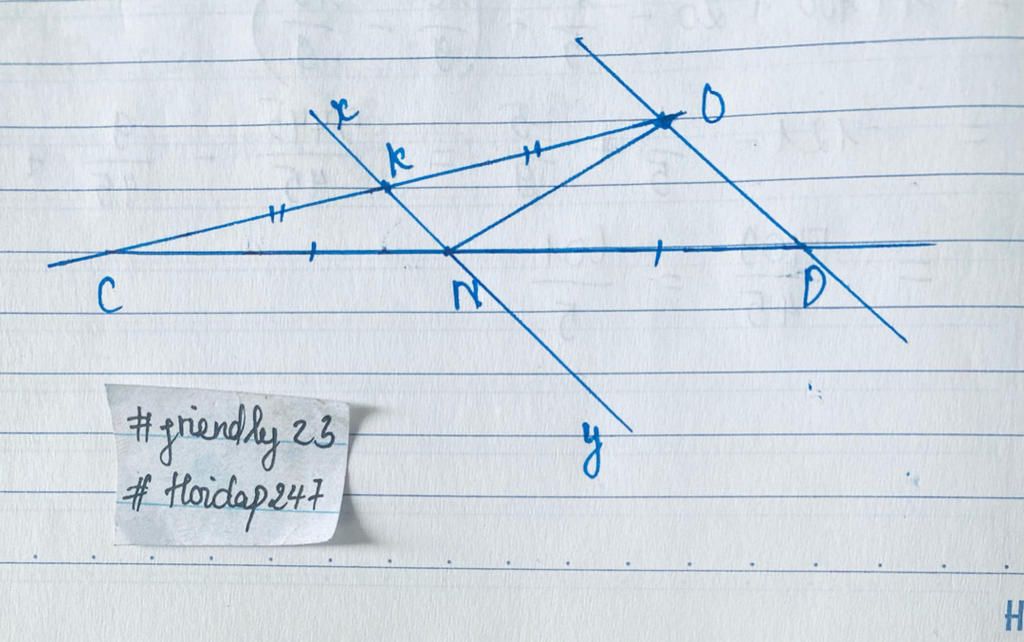 x
K
O
C
N
D
y
#friendly 23
# Hoidap247
H